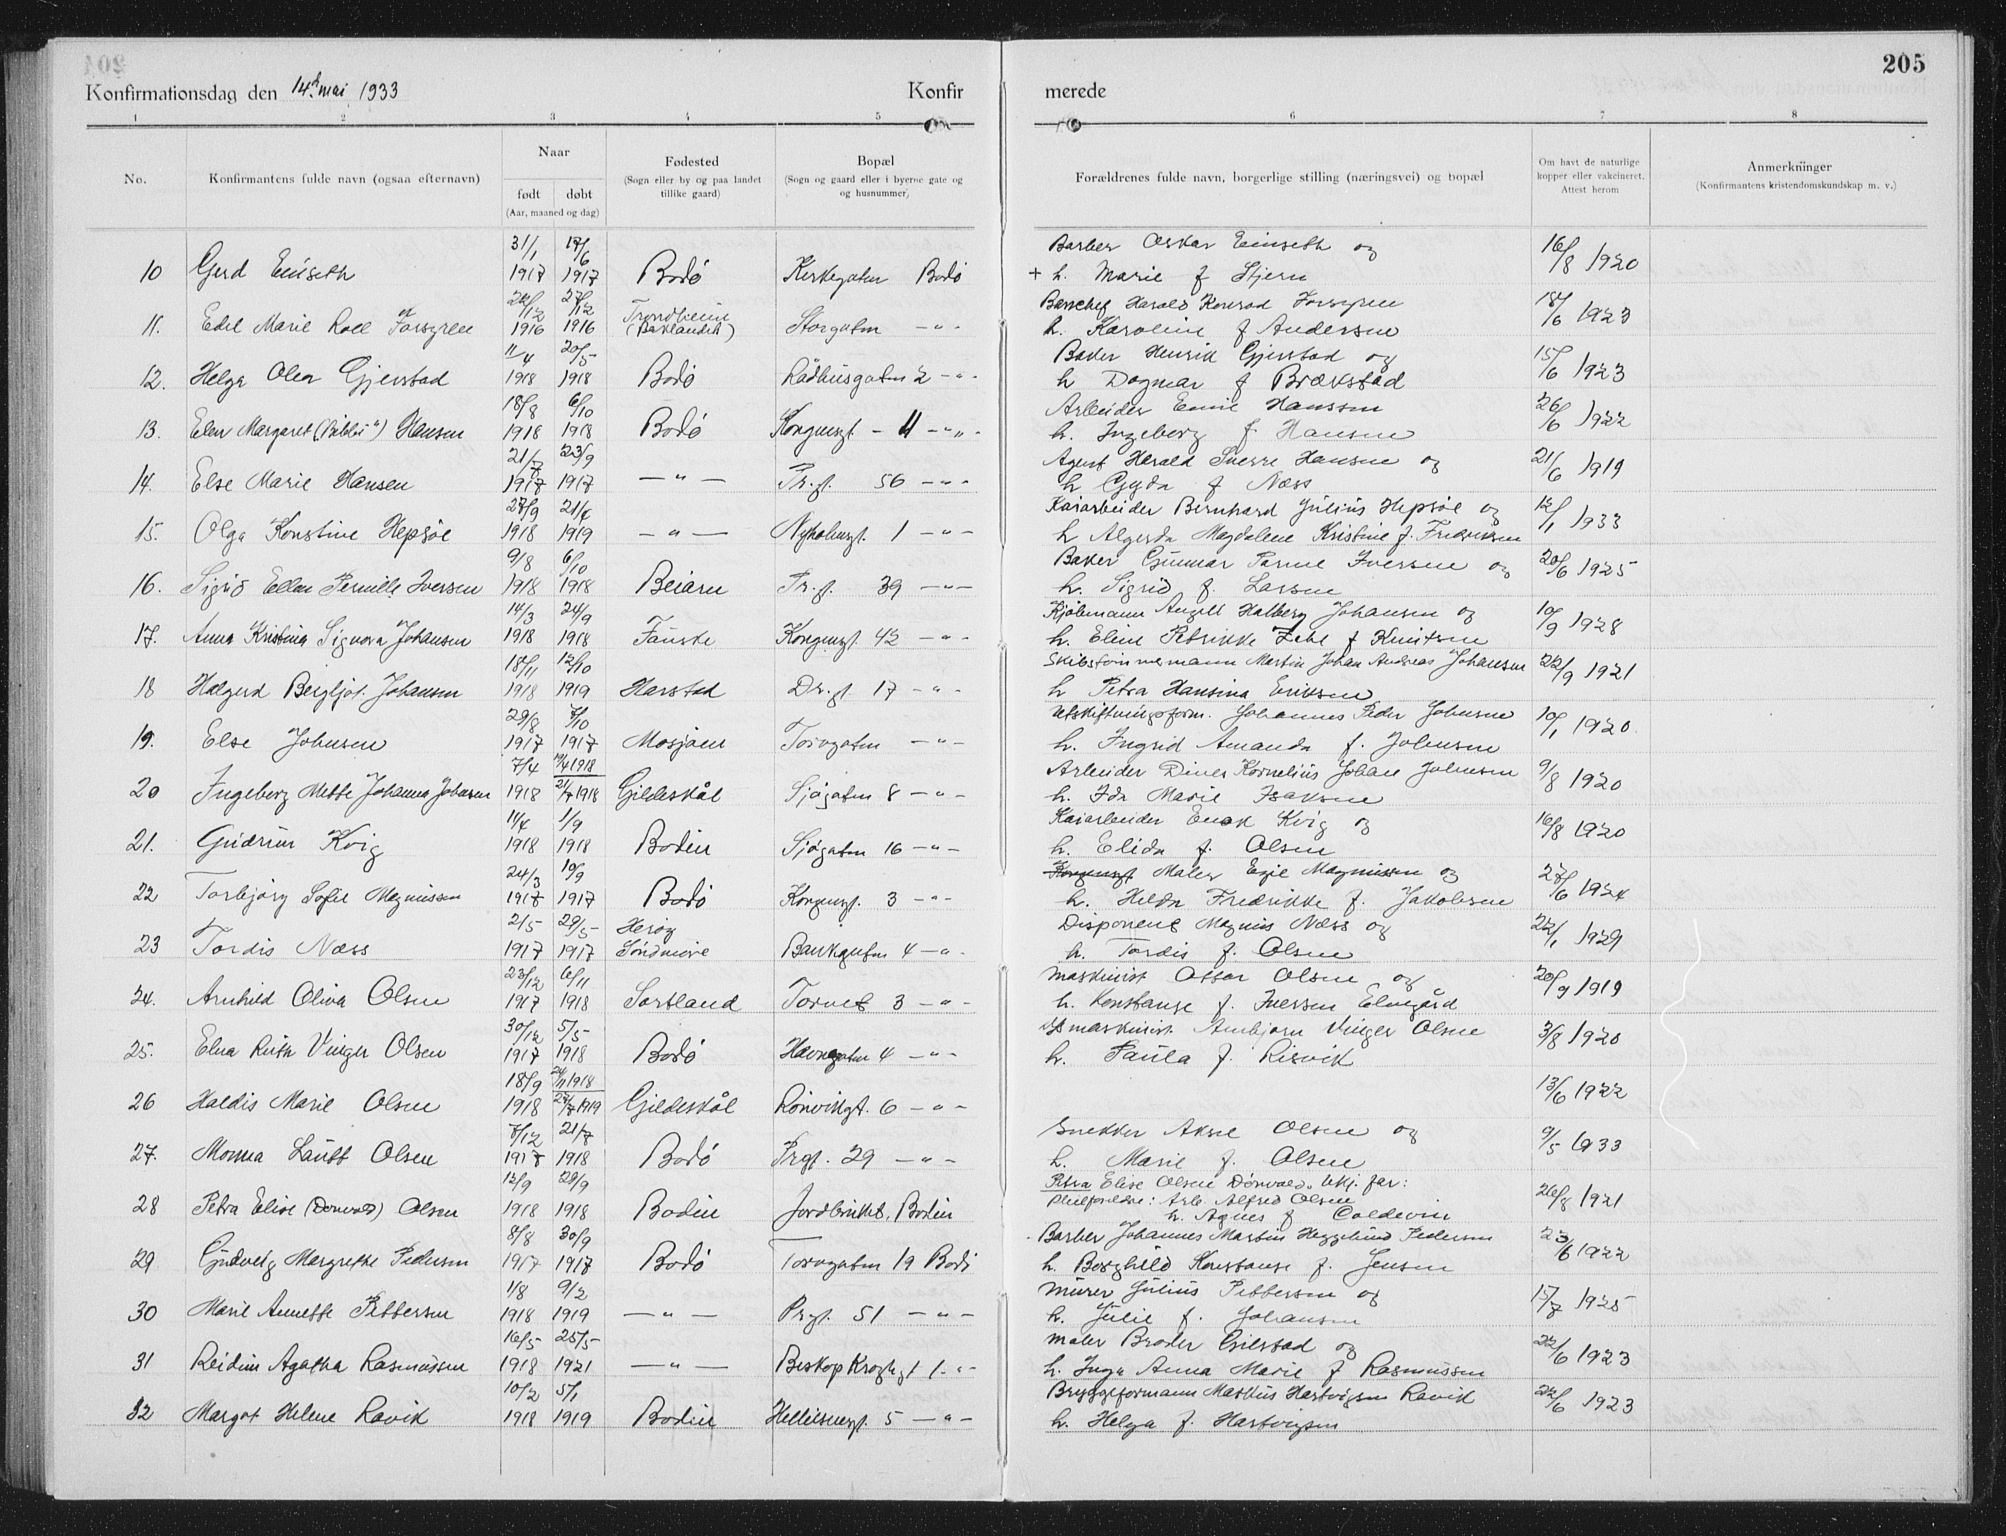 205
Konfirmationsdag den 14d mai 1933 Konfirmerede
1 2 3 4 5 6 7 8
No.
Konfirmantens fulde navn (ogsaa efternavn)
Naar
født døbt
(Aar, maaned og dag)
Fødested
(Sogn eller by og paa landet
tillike gaard)
Bopæl
(Sogn og gaard eller i byerne gate og
og husnummer)
Forældrenes fulde navn, borgerlige stilling (næringsvei) og bopæl
Om havt de naturlige
kopper eller vakcineret.
Attest herom
Anmerkninger
(Konfirmantens kristendomskundskap m. v.)
31/1 17/6 Barber Oskar Einseth og 16/8 1920
10 Gerd Einseth 1917 1917 Bodø Kirkegaten Bodø + h. Marie f Stjern
24/12 27/12 Harald Konrad Forsgren 18/6 1923
11. Edel Marie Roll Forsgren 1916 1916 Trondheim (Baklandet) Storgaten -"- h. Karoline f Andersen
11/4 20/5 Baker Henrik Gjerstad og 15/6 1923
12. Helga Olea Gjerstad 1918 1918 Bodø Rådhusgaten 2 -"- h Dagmar f Brækstad
18/8 6/10 Arbeider Emil Hanssen 26/6 1922
13. Elen Margaret ("Bibbi") Hansen 1918 1918 Bodø Kongensgt - 4 -"- h. Ingeborg f. Hansen
21/7 23/9 Agent Harald Sverre Hansen og 21/6 1919
14. Else Marie Hansen 1917 1917 -"- Pr.gt. 56 -"- h Gyda f Næss
27/9 21/4 Kaiarbeider Bernhard Julius Hepsøe og 12/1 1933
15. Olga Konstine Hepsøe 1918 1919 -"- Nyholmsgt. 1 -"- h Algerda Magdalene Kristine f. Fredriksen
9/8 6/10 Baker Gunnar Parme Iversen og 20/6 1925
16. Sigrid Ellen Pernille Iversen 1918 1918 Beiarn Pr.gt. 39 -"- h. Sigrid f. Larsen
14/3 24/9 Kjøbmann Angell Halberg Johansen og 10/9 1928
17. Anna Kristina Signora Johansen 1918 1918 Fauske Kongensgt 42 -"- h. Eline Petrikke f Knutsen
18/11 12/10 Skibstømmermann Martin Johan Andreas Johansen 22/9 1921
18 Halgerd Bergljot Johansen 1918 1919 Harstad Dr.gt 17 -"- h Petra Hansina Eriksen
29/8 7/10 Utskiftningsform. Johannes Peder Johnsen 10/1 1920
19. Else Johnsen 1917 1917 Mosjøen Torvgaten -"- h. Ingrid Amanda f. Johnsen
7/4 14/4 1918 Arbeider Diner Kornelius Johan Johnsen 9/8 1920
20 Ingeborg Mette Johanna Johnsen 1918 21/7 1918 Gildeskål Sjøgaten 8 -"- h. Ida Marie Isaksen
11/4 1/9 Kaiarbeider Enok Kvig og 16/8 1920
21. Gudrun Kvig 1918 1918 Bodin Sjøgaten 16 -"- h. Elida f. Olsen
24/3 10/9 Kongensgt Maler Egil Magnussen og 27/6 1924
22 Torbjørg Sofie Magnussen 1917 1917 Bodø Kongensgt. 3 -"- h. Helda Fredrikke f. Jakobsen
2/5 29/5 Herøy Disponent Magnus Næss og 22/1 1929
23 Tordis Næss 1917 1917 Søndmøre Bankgaten 4 -"- h. Tordis f. Olsen
23/12 6/11 Maskinist Ottar Olsen og 20/9 1919
24. Arnhild Oliva Olsen 1917 1918 Sortland Torvet 3 -"- h. Konstanse f. Iversen Elvegård
30/12 5/5 maskinist Arnbjørn Vinger Olsen 3/8 1920
25. Elna Ruth Vinger Olsen 1917 1918 Bodø Havnegaten 4 -"- h. Paula f. Risvik
18/9 24/11 1918 13/6 1922
26 Haldis Marie Olsen 1918 27/7 1919 Gildeskål Rønvikgt. 6 -"-
7/12 21/7 Snekker Aksel Olsen og 9/5 1933
27. Monna Lautt Olsen 1917 1918 Bodø Prgt. 29 -"- h. Marie f. Olsen
13/9 29/9 Petra Elise Olsen Dønvold. Ukj. far: 26/8 1921
Pleiforeldre: Arb. Alfred Olsen
28 Petra Elise (Dønvold) Olsen 1918 1918 Bodin Jordbrukt. Bodin h. Agnes f Coldevin
8/8 30/9 Barber Johannes Martin Heggelund Pedersen 23/6 1922
29 Gudveig Margrethe Pedersen 1917 1917 Bodø Torvgaten 19 Bodø h. Borghild Konstanse f. Jensen
1/8 9/2 Murer Julius Pettersen og 15/7 1925
30 Marie Annette Pettersen 1918 1919 -"- Prgt. 51 -"- h. Julie f. Johansen
16/5 25/5 Maler Broder Gilstad og 22/6 1923
31 Reidun Agatha Rasmussen 1918 1921 -"- Biskop Kroghsgt 1. -"- h. Inga Anna Marie f Rasmussen
10/2 5/1 Bryggeformann Markus Hartvigsen Ravik 22/6 1923
32 Margot Helene Ravik 1918 1919 Bodin Hellulsensgt 5 -"- h. Helga f. Hartvigsen